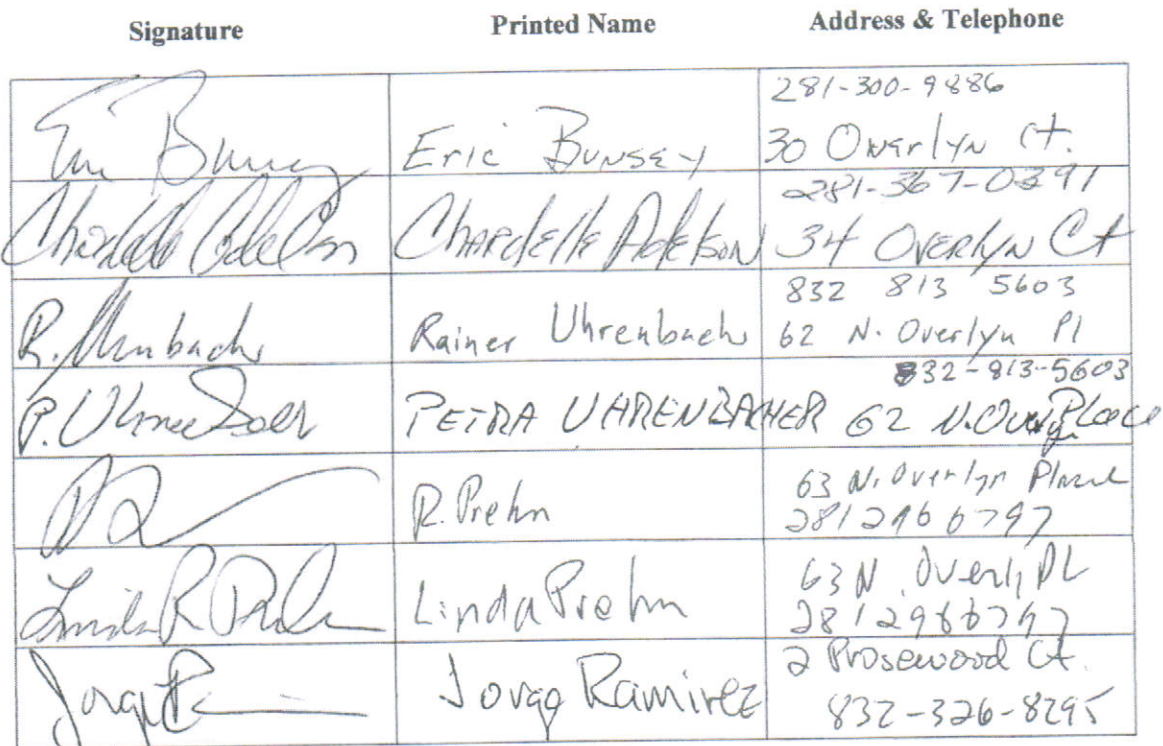 Signature Printed Name Address & Telephone
Eric Bunsey Eric Bunsey 281-300-9886
30 Overlyn Ct.
Chardelle Adelson Chardelle Adelson 281-367-0391
34 Overlyn Ct
R. Uhrenbacher Rainer Uhrenbacher 832 813 5603
62 N. Overlyn Pl
P. Uhrenbacher PETRA UHRENBACHER 832-813-5603
62 N. Overlyn Place
R. Prehn 63 N. Overlyn Place
2812966797
Linda R Prehn Linda Prehn 63 N. Overly PL
2812966797
Jorge R Jorge Ramirez 2 Prosewood Ct.
832-326-8295